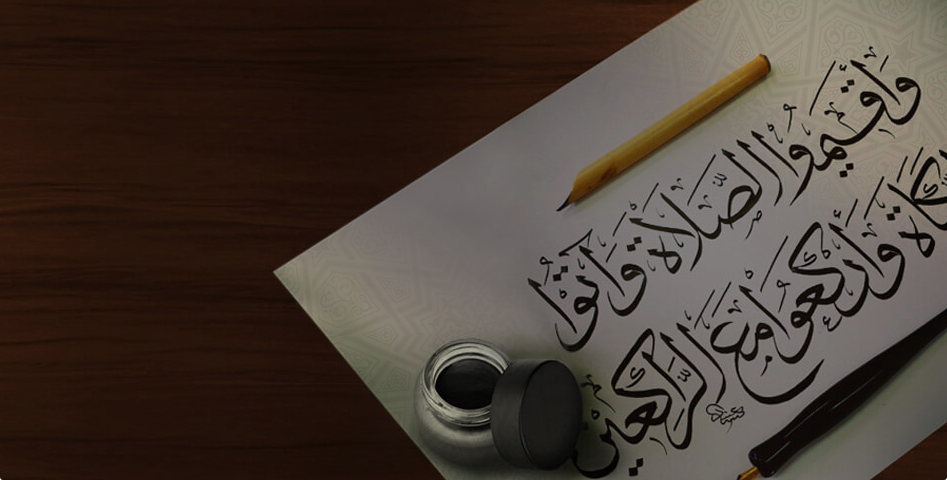 وَأَقِيمُوا الصَّلَاةَ وَآتُوا
كَاةَ وَارْكَعُوا مَعَ الرَّاكِعِينَ